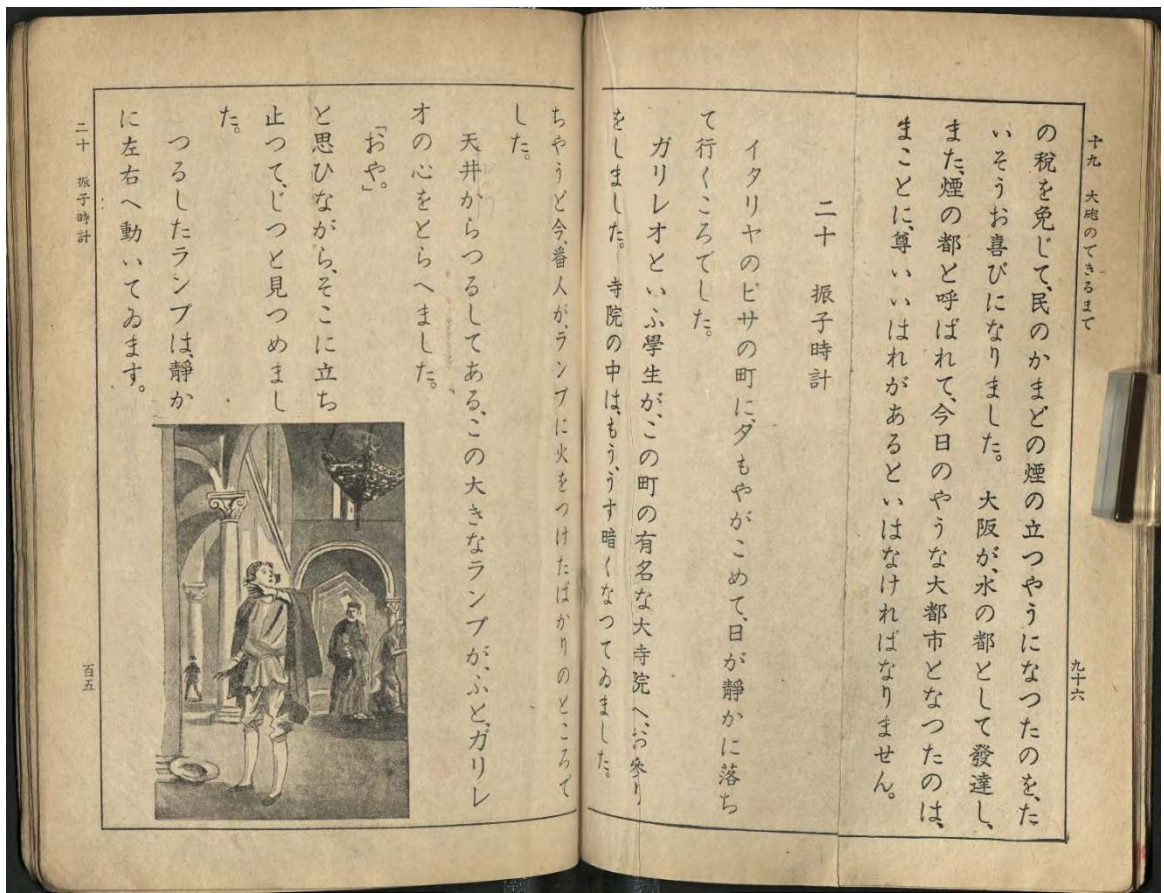 十九 大砲のできるまで
九十六
の稅を免じて、民のかまどの煙の立つやうになつたのを、た
いそうお喜びになりました。 大阪が、水の都として發達し、
また、煙の都と呼ばれて、今日のやうな大都市となつたのは、
まことに、尊いいはれがあるといはなければなりません。
二十 振子時計
イタリヤのピサの町に、夕もやがこめて、日が靜かに落ち
て行くころでした。
ガリレオといふ學生が、この町の有名な大寺院へ、お參り
をしました。 寺院の中は、もう、うす暗くなつてゐました。
ちやうど今、番人が、ランプに火をつけたばかりのところで
した。
天井からつるしてある、この大きなランプが、ふと、ガリレ
オの心をとらへました。
「おや。」
と思ひながら、そこに立ち
止つて、じつと見つめまし
た。
つるしたランプは、靜か
に左右へ動いてゐます。
二十 振子時計
百五